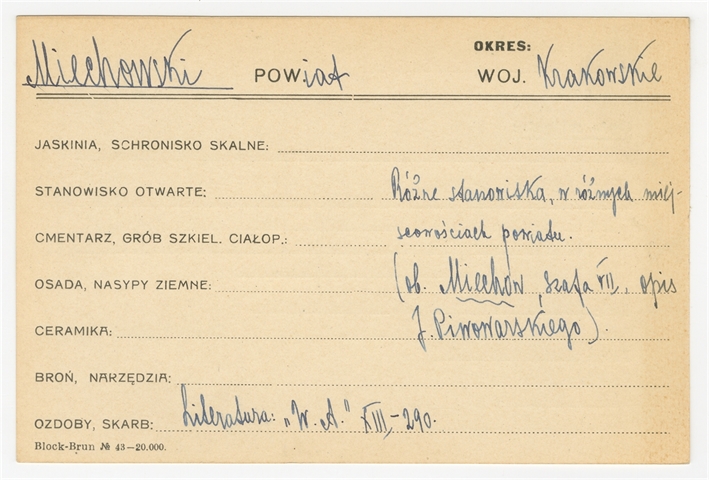 OKRES:
Miechowski POWiat WOJ. Krakowskie
JASKINIA, SCHRONISKO SKALNE:
STANOWISKO OTWARTE: Różne stanowiska, w różnych miej-
CMENTARZ, GRÓB SZKIEL. CIAŁOP.: scowościach powiatu.
OSADA, NASYPY ZIEMNE: (ob. Miechów, szafa VII, opis
CERAMIKA: J. Piwowarskiego).
BROŃ, NARZĘDZIA:
OZDOBY, SKARB: Literatura: „W. A." XIII,-290.
Block-Brun № 43—20.000.